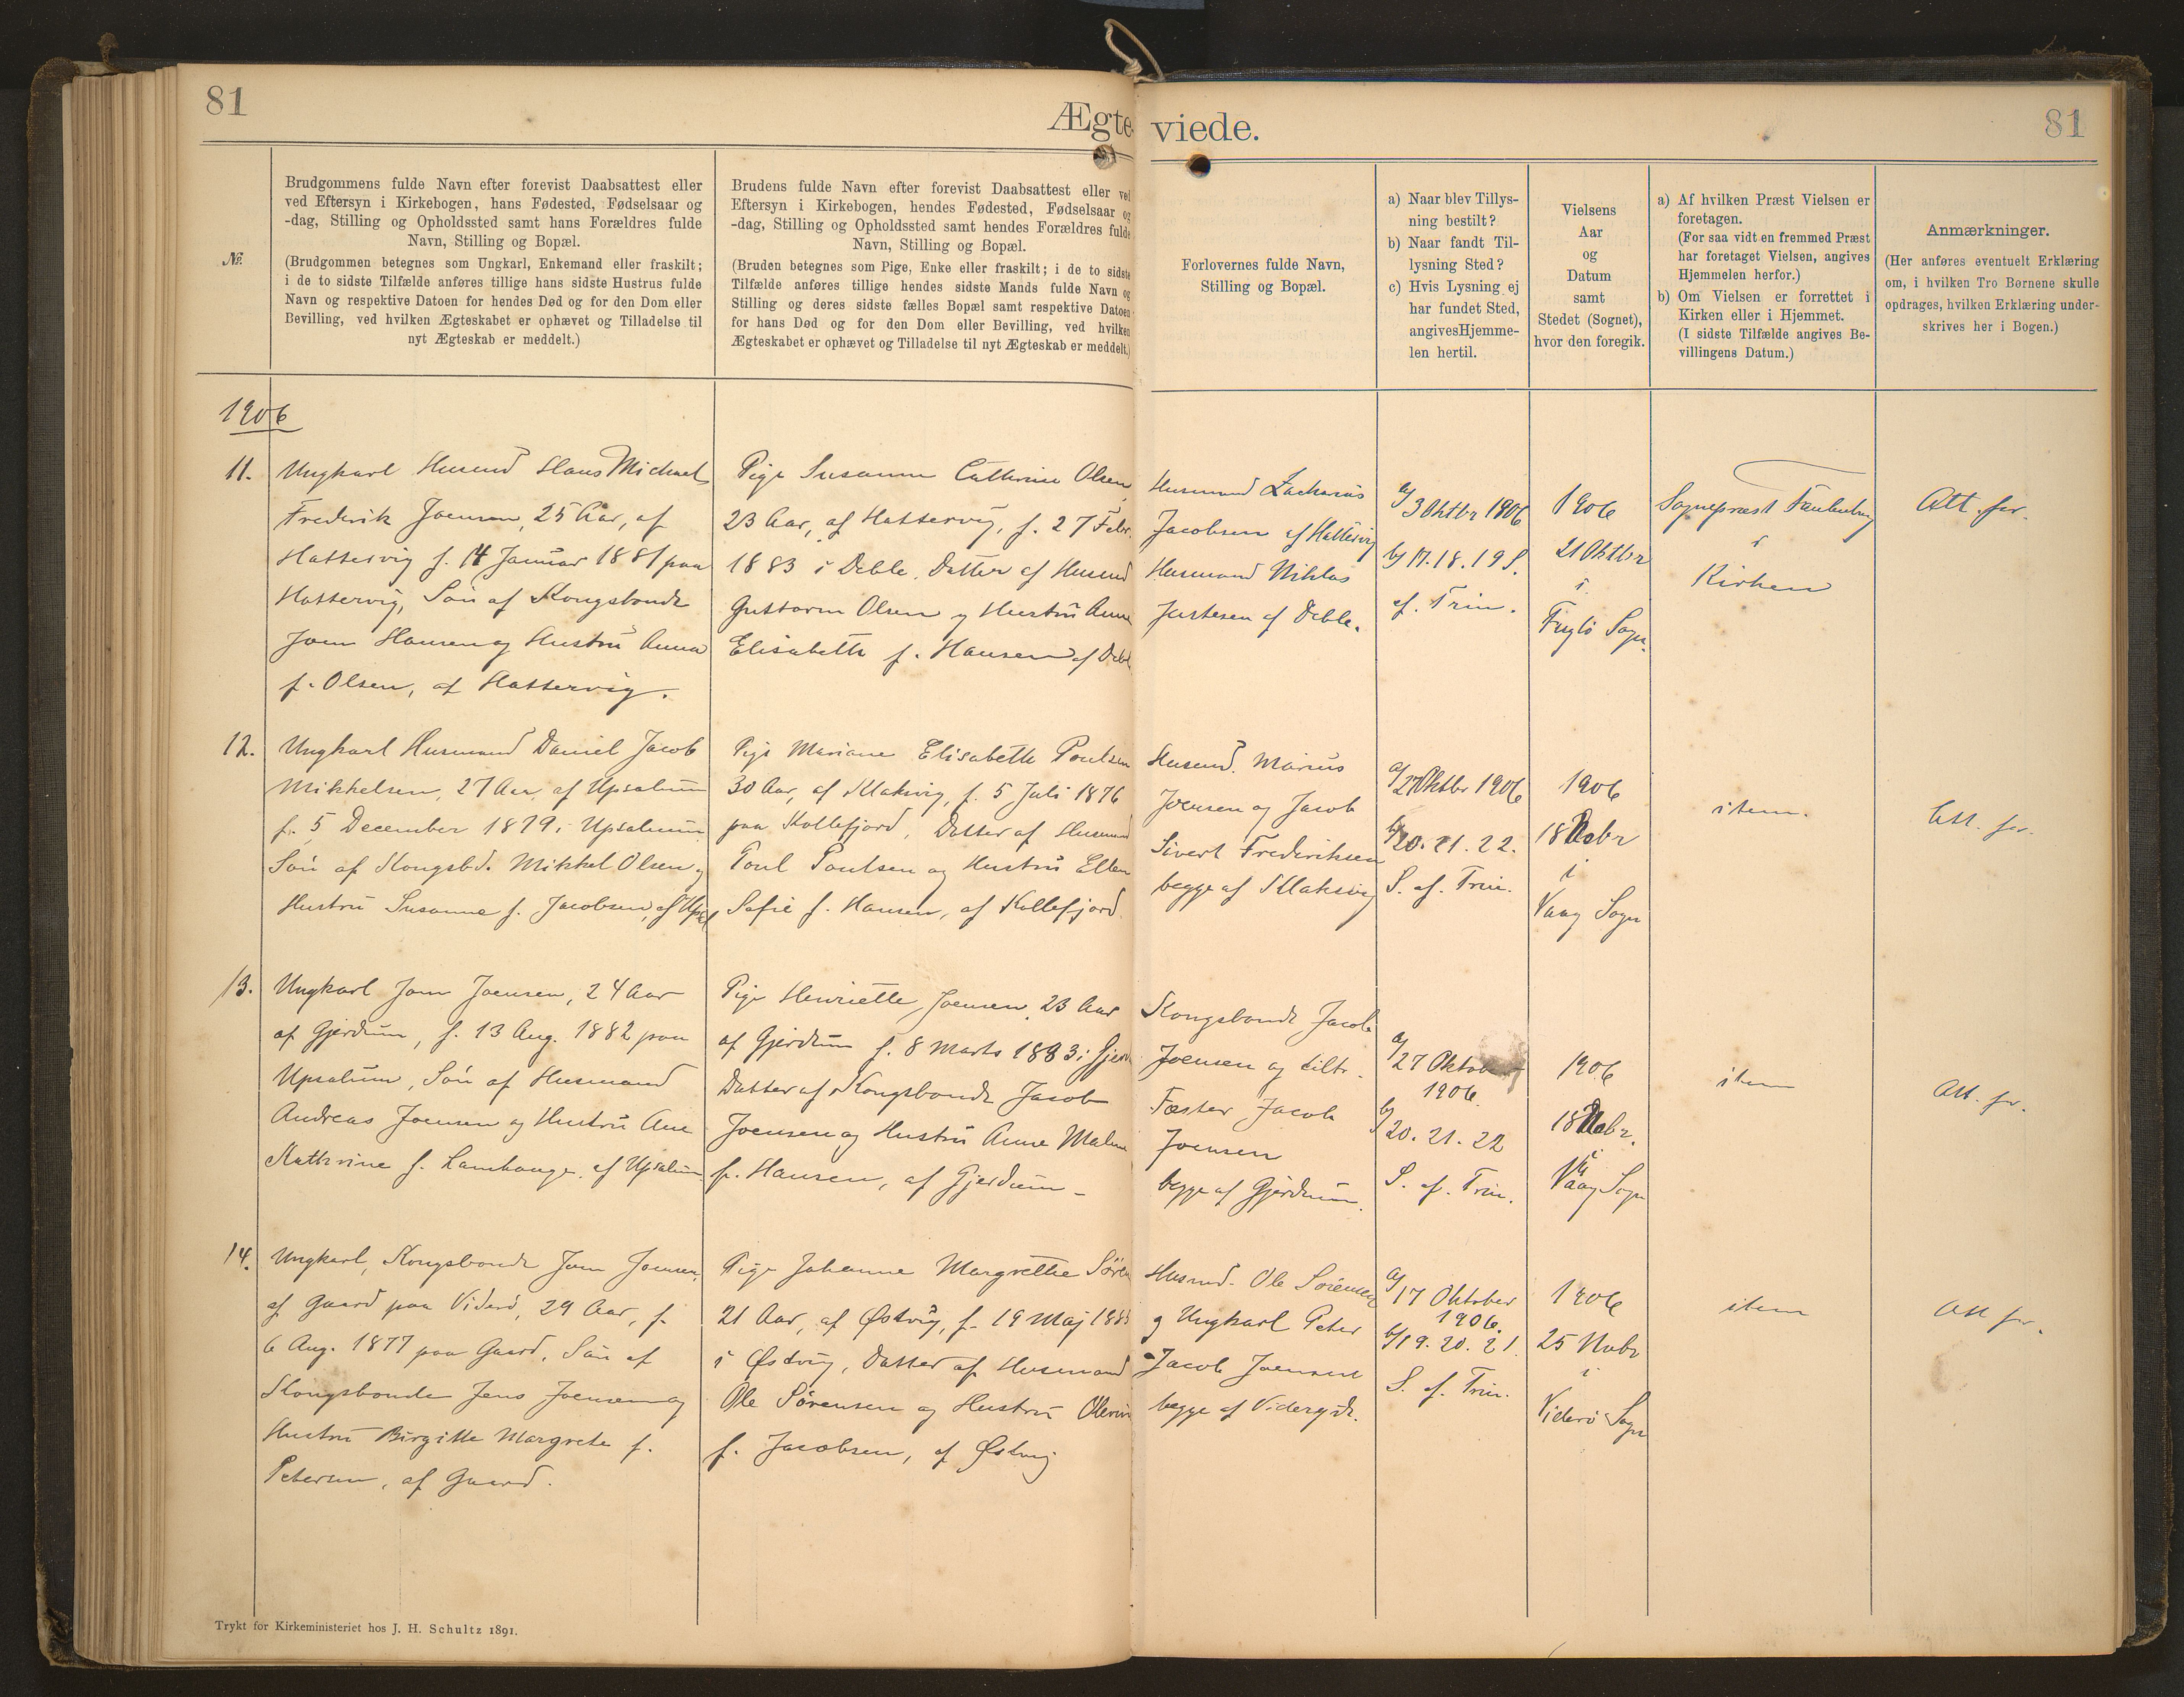 81
Ægte-
viede.
81
№
Brudgommens fulde Navn efter forevist Daabsattest eller
ved Eftersyn i Kirkebogen, hans Fødested, Fødselsaar og
-dag, Stilling og Opholdssted samt hans Forældres fulde
Navn, Stilling og Bopæl.
(Brudgommen betegnes som Ungkarl, Enkemand eller fraskilt;
i de to sidste Tilfælde anføres tillige hans sidste Hustrus fulde
Navn og respektive Datoen for hendes Død og for den Dom eller
Bevilling, ved hvilken Ægteskabet er ophævet og Tilladelse til
nyt Ægteskab er meddelt.)
Brudens fulde Navn efter forevist Daabsattest eller ved
Eftersyn i Kirkebogen, hendes Fødested, Fødselsaar og
-dag, Stilling og Opholdssted samt hendes Forældres fulde
Navn, Stilling og Bopæl.
(Bruden betegnes som Pige, Enke eller fraskilt; i de to sidste
Tilfælde anføres tillige hendes sidste Mands fulde Navn og
Stilling og deres sidste fælles Bopæl samt respektive Datoen
for hans Død og for den Dom eller Bevilling, ved hvilken
Ægteskabet er ophævet og Tilladelse til nyt Ægteskab er meddelt.)
Forlovernes fulde Navn,
Stilling og Bopæl.
a) Naar blev Tillys-
ning bestilt?
b) Naar fandt Til-
lysning Sted?
c) Hvis Lysning ej
har fundet Sted,
angivesHjemme-
len hertil.
Vielsens
Aar
og
Datum
samt
Stedet (Sognet),
hvor den foregik.
a) Af hvilken Præst Vielsen er
foretagen.
(For saa vidt en fremmed Præst
har foretaget Vielsen, angives
Hjemmelen herfor.)
b) Om Vielsen er forrettet i
Kirken eller i Hjemmet.
(I sidste Tilfælde angives Be-
villingens Datum.)
Anmærkninger.
(Her anføres eventuelt Erklæring
om, i hvilken Tro Børnene skulle
opdrages, hvilken Erklæring under-
skrives her i Bogen.)
1906
11.
Ungkarl Husmd Hans Michael
Frederik Joensen, 25 Aar, af
Hattervig f. 14 Januar 1881 paa
Hattervig, Søn af Kongsbonde
Joen Hansen og Hustru Anna
f. Olsen, af Hattervig.
Pige Susanne Cathrine Olsen
23 Aar, af Hattervig, f. 27 Febr.
1883 i Deble, Datter af Husmd
Guttorm Olsen og Hustru Anne
Elisabeth f. Hansen af Debl
Husmand Zacharias
Jacobsen af Hattervig
Husmand Niklas
Justesen af Deble.
a/ 3 Oktbr 1906
b/ 17. 18. 19 S.
ef. Trin.
1906
21 Oktbr
i
Fuglø Sogn.
Sognepræst
i
Kirken
Att. for.
12.
Ungkarl Husmand Daniel Jacob
Mikkelsen, 27 Aar af Upsalum
f. 5 December 1879 i Upsalum
Søn af Kongsbd. Mikkel Olsen og
Hustru Susanne f. Jacobsen, af Upsal
Pige Mariane Elisabeth Poulsen
30 Aar, af Klaksvig, f. 5 Juli 1876
paa Kollefjord, Datter af Husmand
Poul Poulsen og Hustru Ellen
Sofie f. Hansen, af Kollefjord
Husmd. Marius
Joensen og Jacob
Sivert Frederiksen
begge af Klaksvig
a/ 27 Oktbr 1906
b/ 20. 21. 22.
S. ef. Trin.
1906
18 Nobr
i
Vaag Sogn
item.
Att. for.
13.
Ungkarl Joen Joensen, 24 Aar
af Gjerdum, f. 13 Aug. 1882 paa
Upsalum, Søn af Husmand
Andreas Joensen og Hustru Ane
Kathrine f. Lamhauge, af Upsalum
Pige Henriette Joensen, 23 Aar
af Gjerdum f. 8 Marts 1883 i Gjerd
Datter af Kongsbonde Jacob
Joensen og Hustru Anne Malene
f. Hansen, af Gjerdum -
Kongsbonde Jacob
Joensen og tiltr.
Fæster Jacob
Joensen
begge af Gjerdum.
a/ 27 Oktober
1906.
b/ 20. 21. 22
S. ef. Trin.
1906
18 Nobr.
i
Vaag Sogn
item
Att. for.
14.
Ungkarl, Kongsbonde Joen Joensen,
af Gaard paa Viderø, 29 Aar, f.
6 Aug. 1877 paa Gaard, Søn af
Kongsbonde Jens Joensen og
Hustru Birgitte Margrete f.
Petersen, af Gaard.
Pige Johanne Margrethe Søren
21 Aar, af Østvig, f. 19 Maj 1885
i Østvig, Datter af Husmand
Ole Sørensen og Hustru
f. Jacobsen, af Østvig
Husmd. Ole Sørensen
og Ungkarl Peter
Jacob Joensen
begge af
a/ 17 Oktober
1906.
b/ 19. 20. 21.
S. ef. Trin.
1906
25 Nobr
i
Viderø Sogn
item
Att for.
Trykt for Kirkeministeriet hos J. H. Schultz 1891.